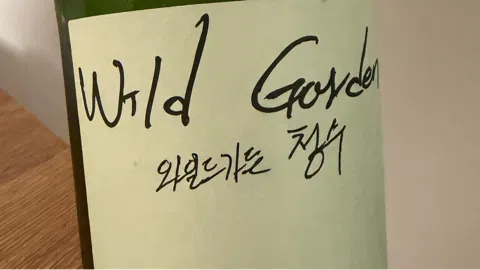 Wild Garden
와일드가든 청수